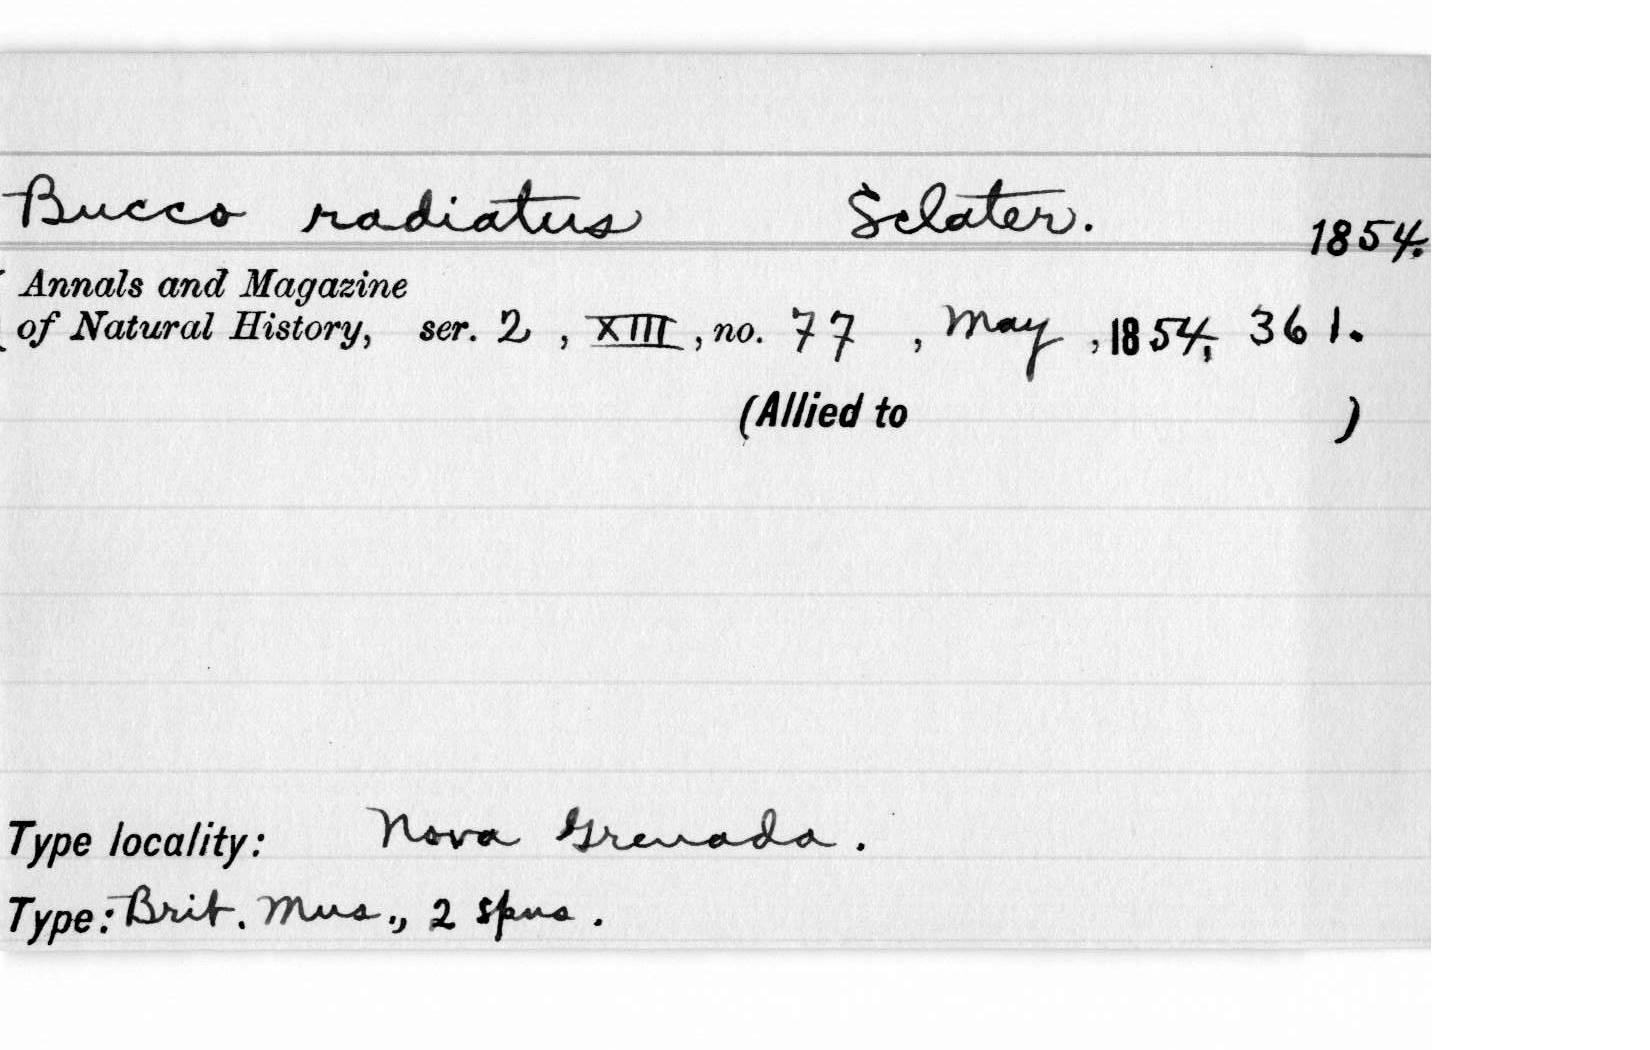 Bucco radiatus Sclater. 1854.
Annals and Magazine
of Natural History, ser. 2, XIII, no. 77, May, 1854, 361.
(Allied to )
Type locality: Nova Grenada.
Type: Brit. Mus., 2 spns.